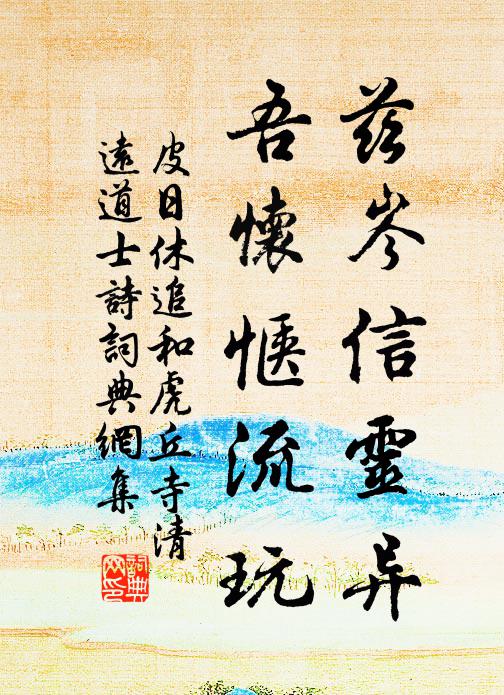 茲岑信靈异
吾懷愜流玩
皮日休追和虎丘寺清
遠道士詩詞典網集
詞典網印